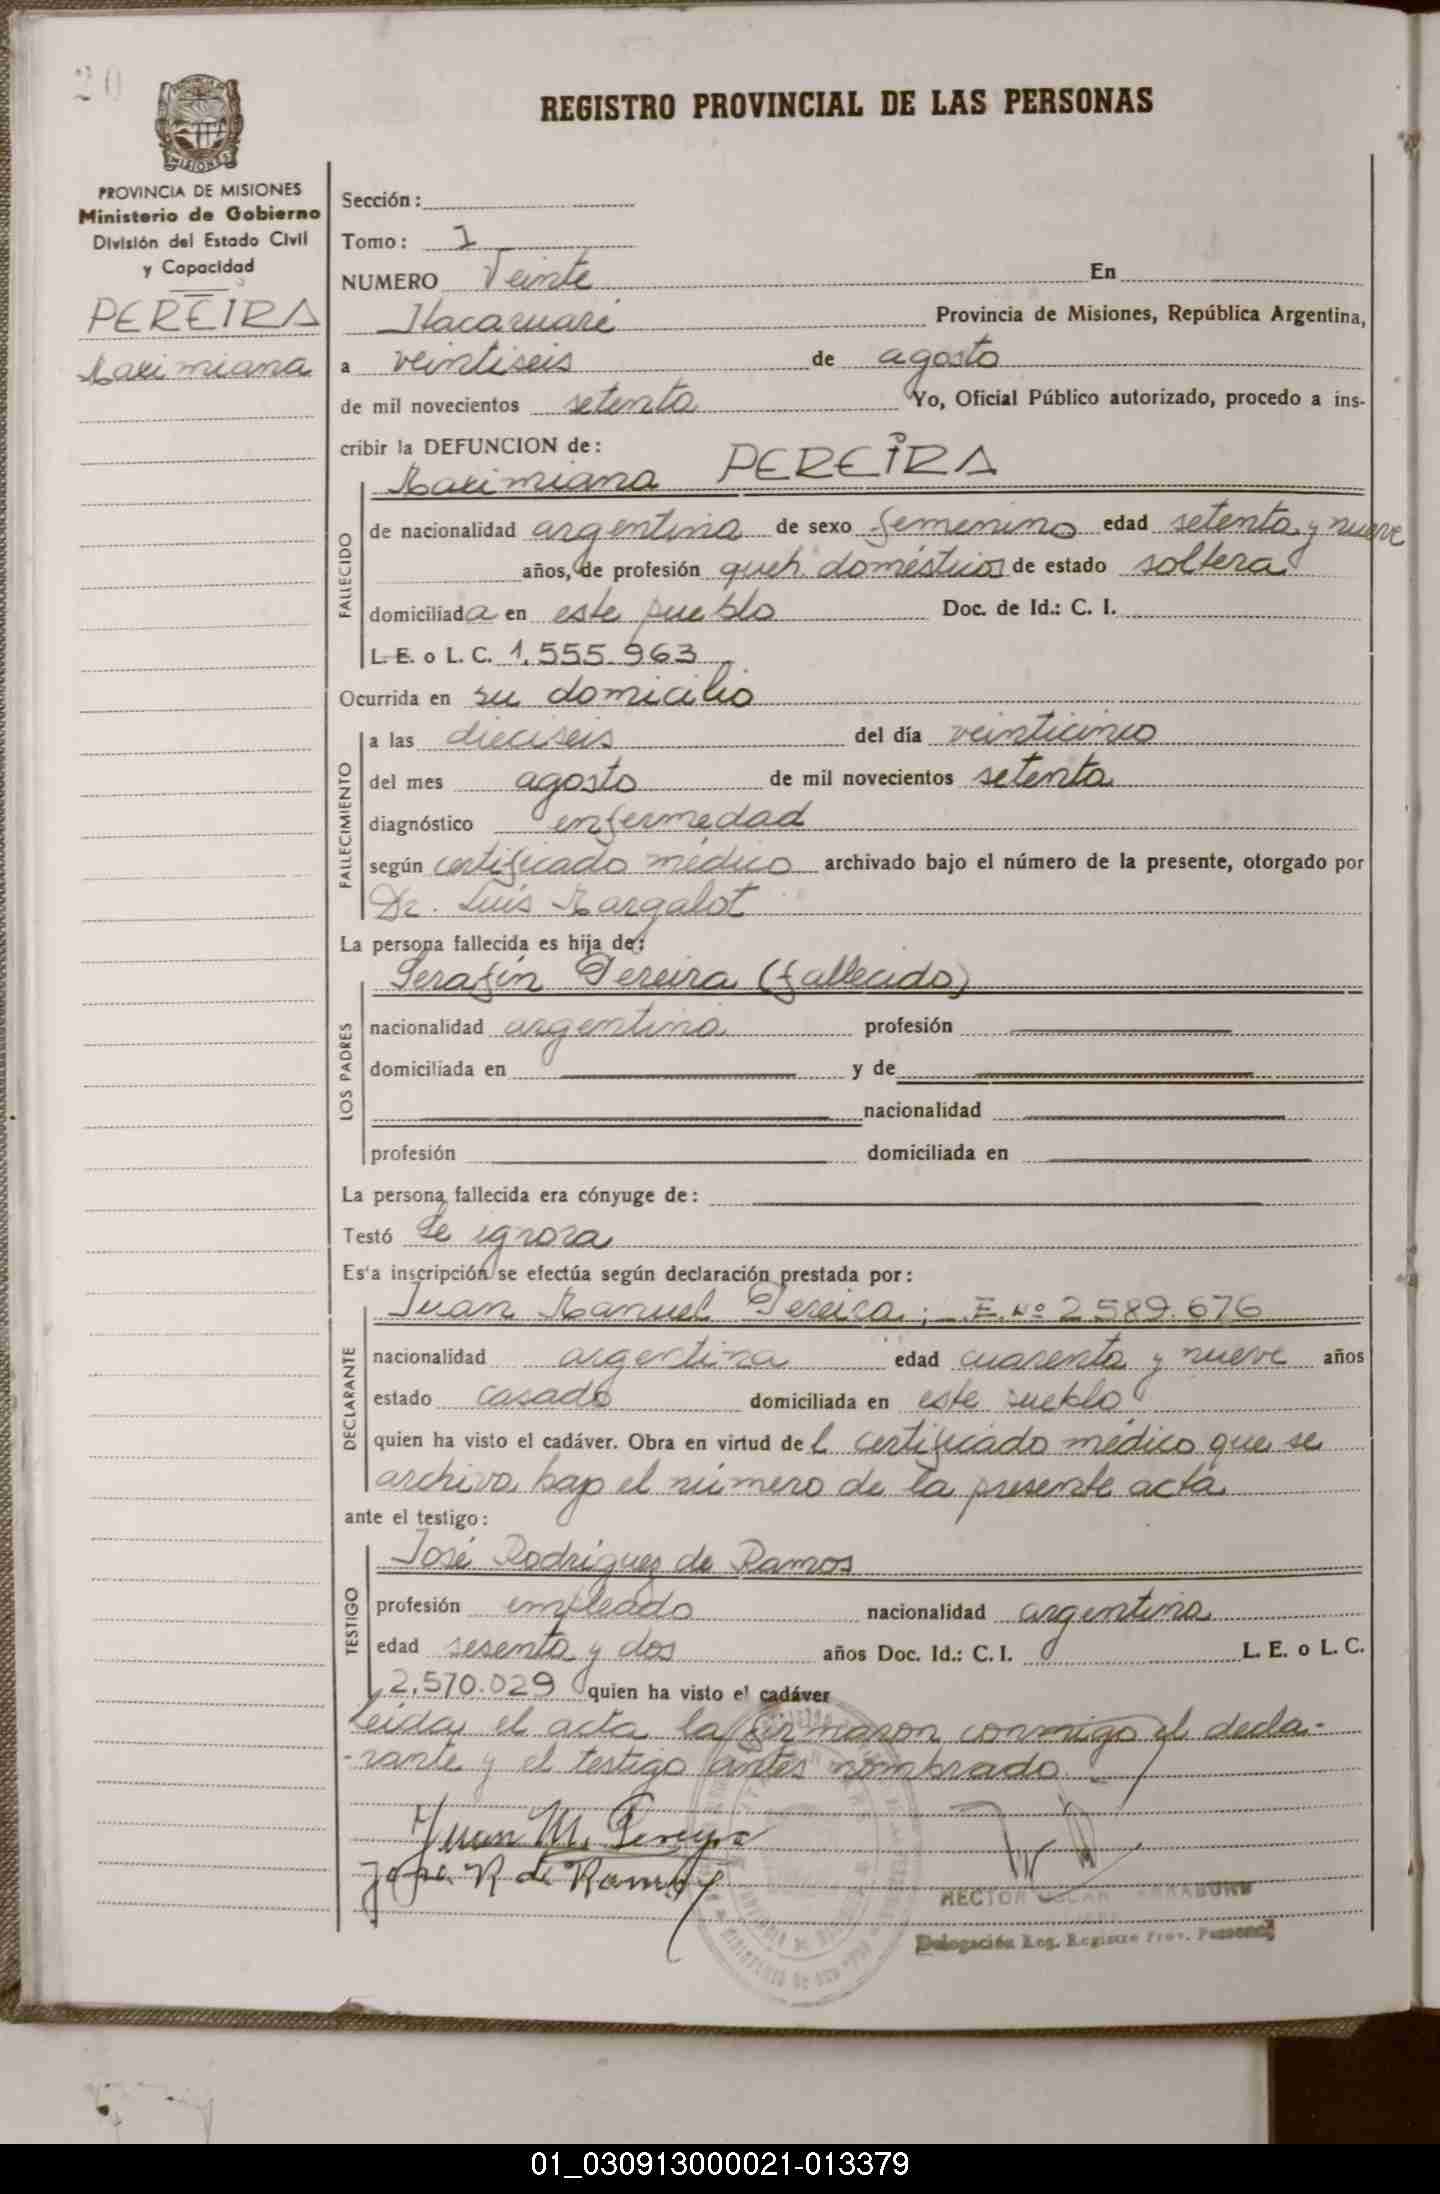 20
REGISTRO PROVINCIAL DE LAS PERSONAS
PROVINCIA DE MISIONES
Ministerio de Gobierno
División del Estado Civil
y Capacidad
PEREIRA
Maximiana
Sección:
Tomo: I
NUMERO Veinte En
Itacaruaré Provincia de Misiones, República Argentina,
a veintiseis de agosto
de mil novecientos setenta Yo, Oficial Público autorizado, procedo a ins-
cribir la DEFUNCION de:
Maximiana PEREIRA
FALLECIDO
de nacionalidad argentina de sexo femenino edad setenta y nueve
años, de profesión queh. domésticos de estado soltera
domiciliada en este pueblo Doc. de Id.: C. I.
L. E. o L. C. 1.555.963
Ocurrida en su domicilio
FALLECIMIENTO
a las dieciseis del día veinticinco
del mes agosto de mil novecientos setenta
diagnóstico enfermedad
según certificado médico archivado bajo el número de la presente, otorgado por
Dr. Luis Margalot
La persona fallecida es hija de:
LOS PADRES
Serafín Pereira (fallecido)
nacionalidad argentina profesión
domiciliada en y de
nacionalidad
profesión domiciliada en
La persona fallecida era cónyuge de:
Testó Se ignora
Es'a inscripción se efectúa según declaración prestada por:
DECLARANTE
Juan Manuel Pereira; L.E. Nº 2.589.676
nacionalidad argentina edad cuarenta y nueve años
estado casado domiciliada en este pueblo
quien ha visto el cadáver. Obra en virtud del certificado médico que se
archiva bajo el número de la presente acta
ante el testigo:
TESTIGO
José Rodríguez de Ramos
profesión empleado nacionalidad argentina
edad sesenta y dos años Doc. Id.: C. I. L. E. o L. C.
2.570.029 quien ha visto el cadáver
Leída el acta la firmaron conmigo el decla-
-rante y el testigo antes nombrado
Juan M. Pereyra
Jose R de Ramos
HECTOR OSCAR
Delegación Reg. Registro Prov. Personas
01_030913000021-013379